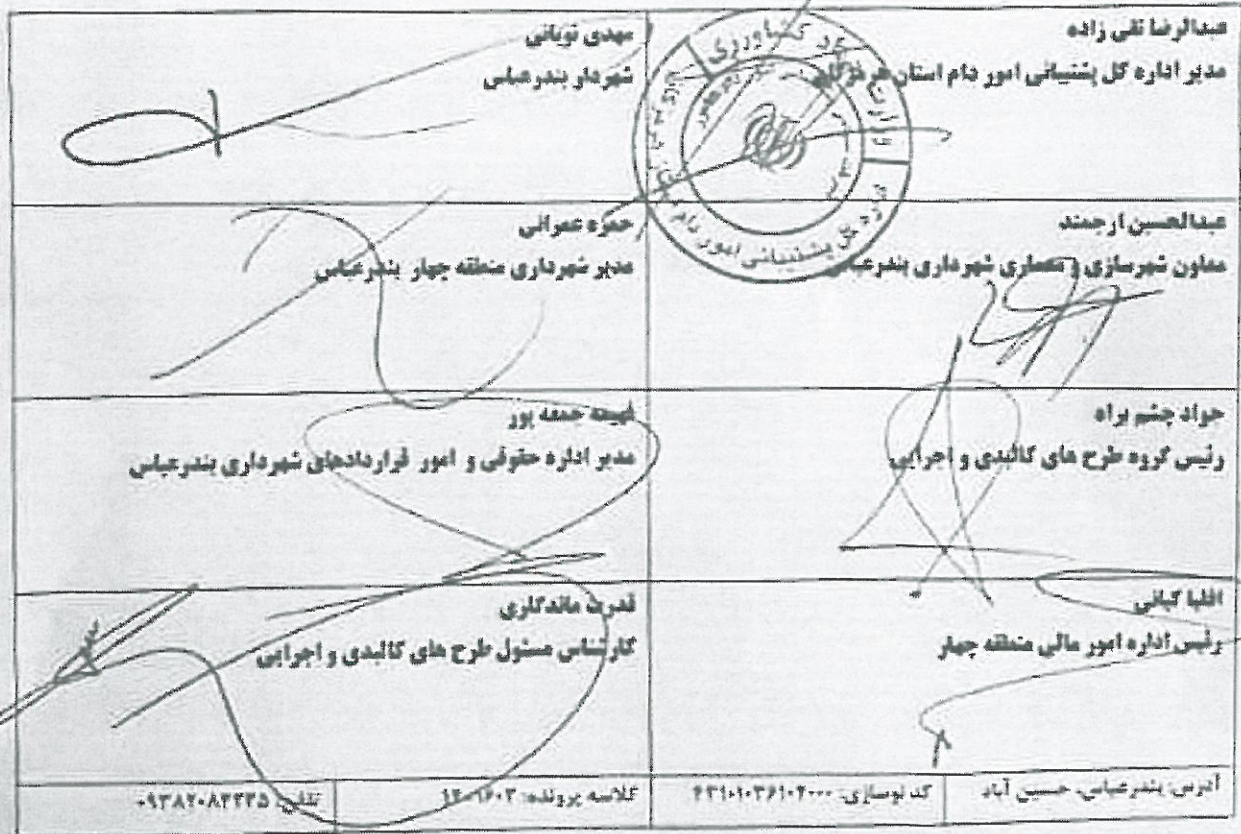 عبدالرضا تقی زاده
مدیر اداره کل پشتیبانی امور دام استان هرمزگان
مهدی نوبانی
شهردار بندرعباس
عبدالحسین ارجمند
معاون شهرسازی و معماری شهرداری بندرعباس
حمزه عمرانی
مدیر شهرداری منطقه چهار بندرعباس
جواد چشم براه
رئیس گروه طرح های کالبدی و اجرایی
فهیمه جمعه پور
مدیر اداره حقوقی و امور قراردادهای شهرداری بندرعباس
کیانی
رئیس اداره امور مالی منطقه چهار
قدرت ماندگاری
کارشناس مسئول طرح های کالبدی و اجرایی
آدرس: بندرعباس، حسین آباد
کد نوسازی:
کلاسه پرونده:
تلفن:
اداره کل پشتیبانی امور دام